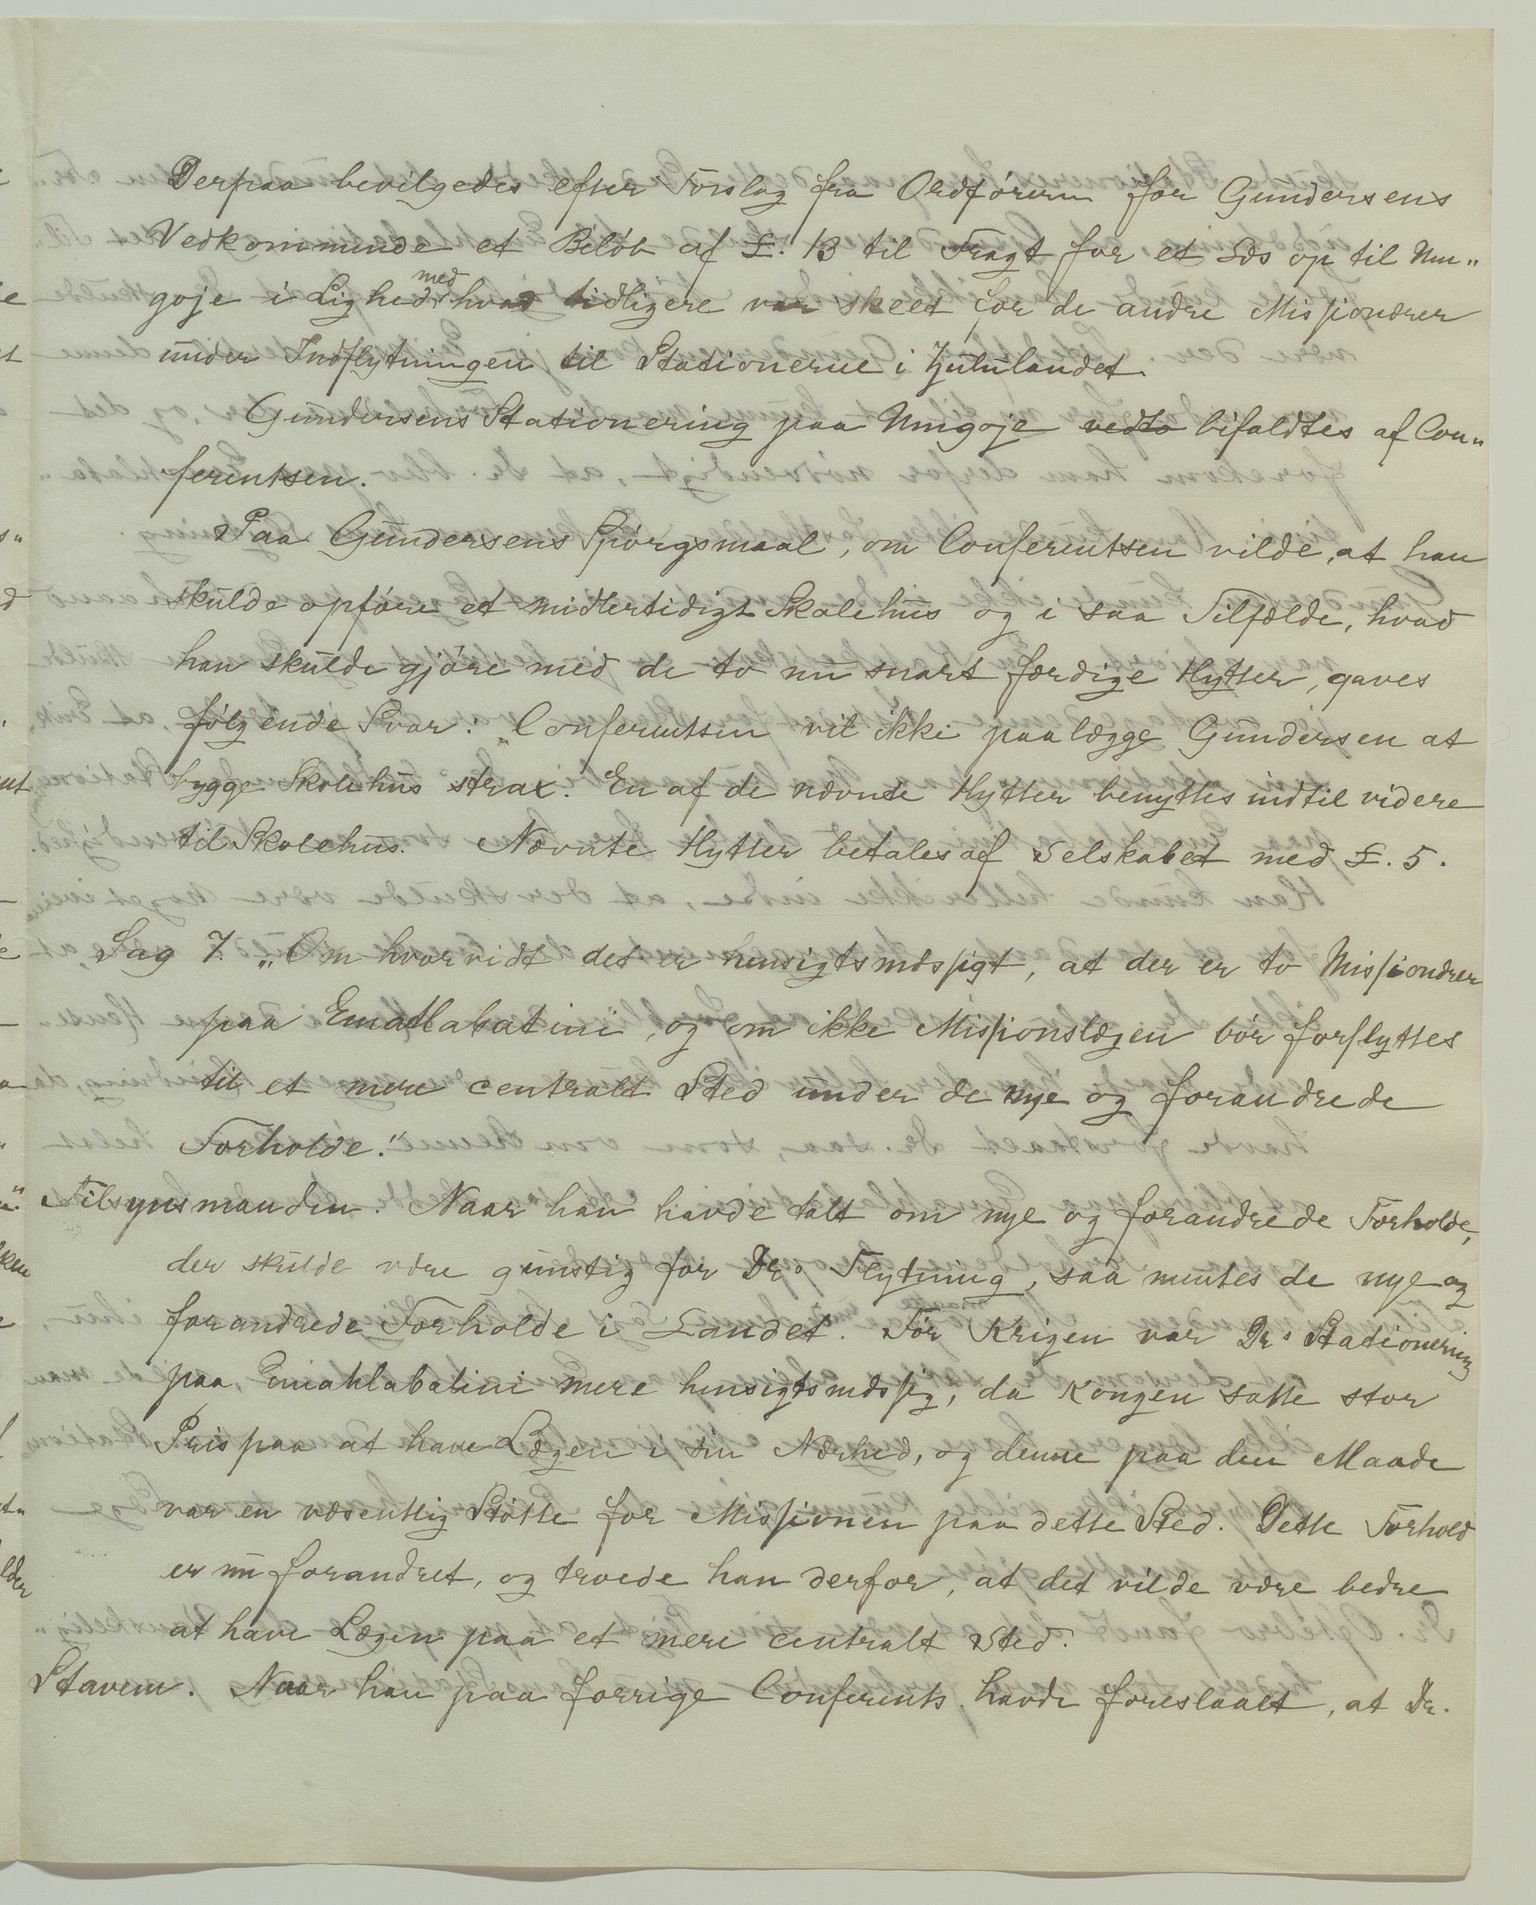 Derpaa bevilgedes efter Forslag fra Ordføreren for Gundersens
Vedkommende et Beløb af £. 13 til Fragt for et Læs op til Um„
goje i Lighed med hvad tidligere var skeet for de andre Missionærer
under Indflytningen til Stationerne i Zululandet.
Gundersens Stationering paa Umgoje vedto bifaldtes af Con„
ferentsen.
Paa Gundersens Spørgsmaal, om Conferentsen vilde, at han
skulde opføre et midlertidigt Skolehus og i saa Tilfælde, hvad
han skulde gjøre med de to nu snart færdige Hytter, gaves
følgende Svar: „Conferentsen vil ikke paalægge Gundersen at
bygge Skolehus strax. En af de nævnte Hytter benyttes indtil videre
til Skolehus. Nævnte Hytter betales af Selskabet med £. 5.
Sag 7. „Om hvorvidt det er hensigtsmæssigt, at der er to Missionærer
paa Emahlabatini, og om ikke Missionslægen bør forflyttes
til et mere centralt Sted under de nye og forandrede
Forholde."
Tilsynsmanden. Naar han havde talt om nye og forandrede Forholde,
der skulde være gunstig for Drs Flytning, saa mentes de nye og
forandrede Forholde i Landet. Før Krigen var Drs Stationering
paa Emahlabatini mere hensigtsmæssig, da Kongen satte stor
Pris paa at have Lægen i sin Nærhed, og denne paa den Maade
var en væsentlig Støtte for Missionen paa dette Sted. Dette Forhold
er nu forandret, og troede han derfor, at det vilde være bedre
at have Lægen paa et mere centralt Sted.
Stavem. Naar han paa forrige Conferents havde foreslaaet, at Dr.